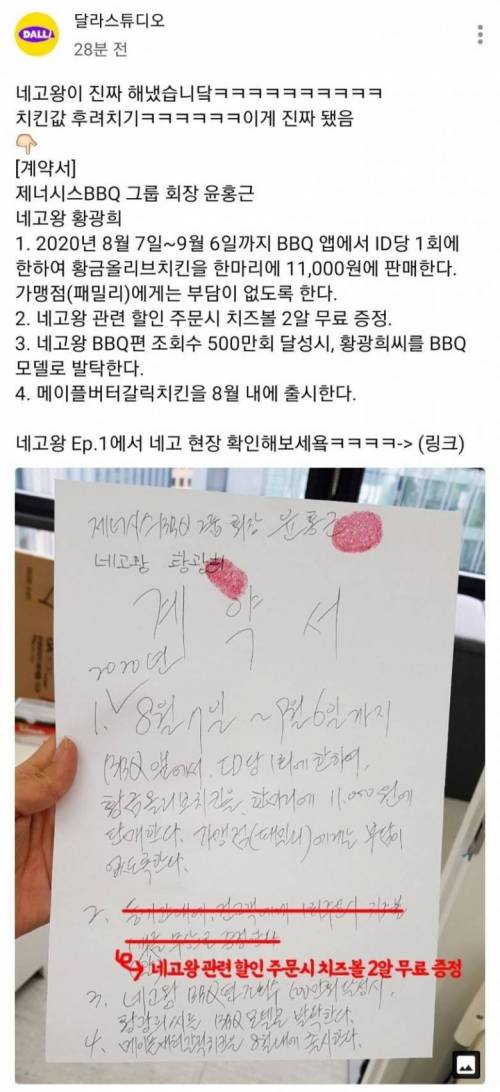 달라스튜디오
DALLA
28분 전
네고왕이 진짜 해냈습니닼ㅋㅋㅋㅋㅋㅋㅋㅋㅋㅋ
치킨값 후려치기ㅋㅋㅋㅋㅋㅋ이게 진짜 됐음
[계약서]
제너시스BBQ 그룹 회장 윤홍근
네고왕 황광희
1. 2020년 8월 7일~9월 6일까지 BBQ 앱에서 ID당 1회에
한하여 황금올리브치킨을 한마리에 11,000원에 판매한다.
가맹점(패밀리)에게는 부담이 없도록 한다.
2. 네고왕 관련 할인 주문시 치즈볼 2알 무료 증정.
3. 네고왕 BBQ편 조회수 500만회 달성시, 황광희씨를 BBQ
모델로 발탁한다.
4. 메이플버터갈릭치킨을 8월 내에 출시한다.
네고왕 Ep.1에서 네고 현장 확인해보세욬ㅋㅋㅋㅋ-> (링크)
제너시스BBQ 그룹 회장 윤홍근
네고왕 황광희
계약서
2020년
1. 8월 7일 ~ 9월 6일까지
BBQ 앱에서, ID당 1회에 한하여,
황금올리브치킨을, 한마리에 11,000원에
판매한다. 가맹점(패밀리)에게는 부담이
없도록한다.
2.
네고왕 관련 할인 주문시 치즈볼 2알 무료 증정
3. 네고왕 BBQ편 조회수 500만회 달성시,
황광희씨를 BBQ 모델로 발탁한다.
4. 메이플버터갈릭치킨을 8월내에 출시한다.